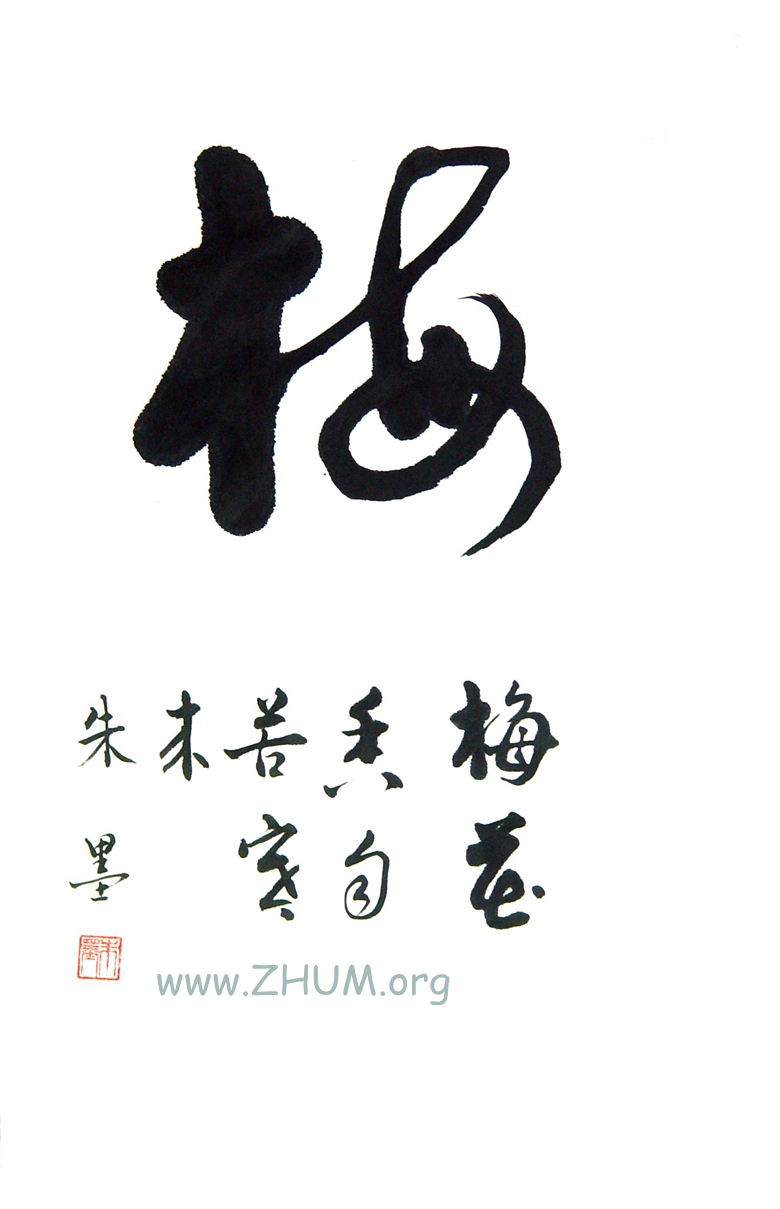 梅
梅花
香自
苦寒
来
朱墨
朱墨
www.ZHUM.org